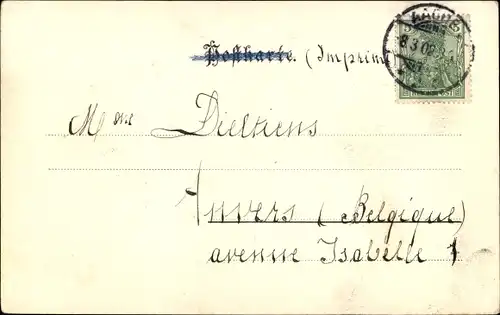 8.3.02
Postkarte. (Imprimé
Mme Dieltiens
Anvers (Belgique)
avenue Isabelle 1